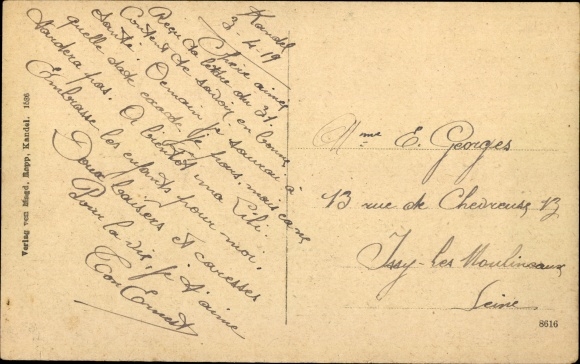 Kandel
3-4-19
Chère aimée
Reçu ta lettre du 31.
Content de savoir en bonne
santé. Demain je saurai à
quelle date exacte je pars, mais ça ne
tardera pas. A bientôt ma Lili.
Embrasse les enfants pour moi.
Doux baisers et caresses
Pour la vie, je t'aime
Ton Ernest
Verlag von Magd. Rapp, Kandel. 1526
Mme E. Georges
13 rue de Chevreuse 13
Issy-les Moulineaux
Seine
8616